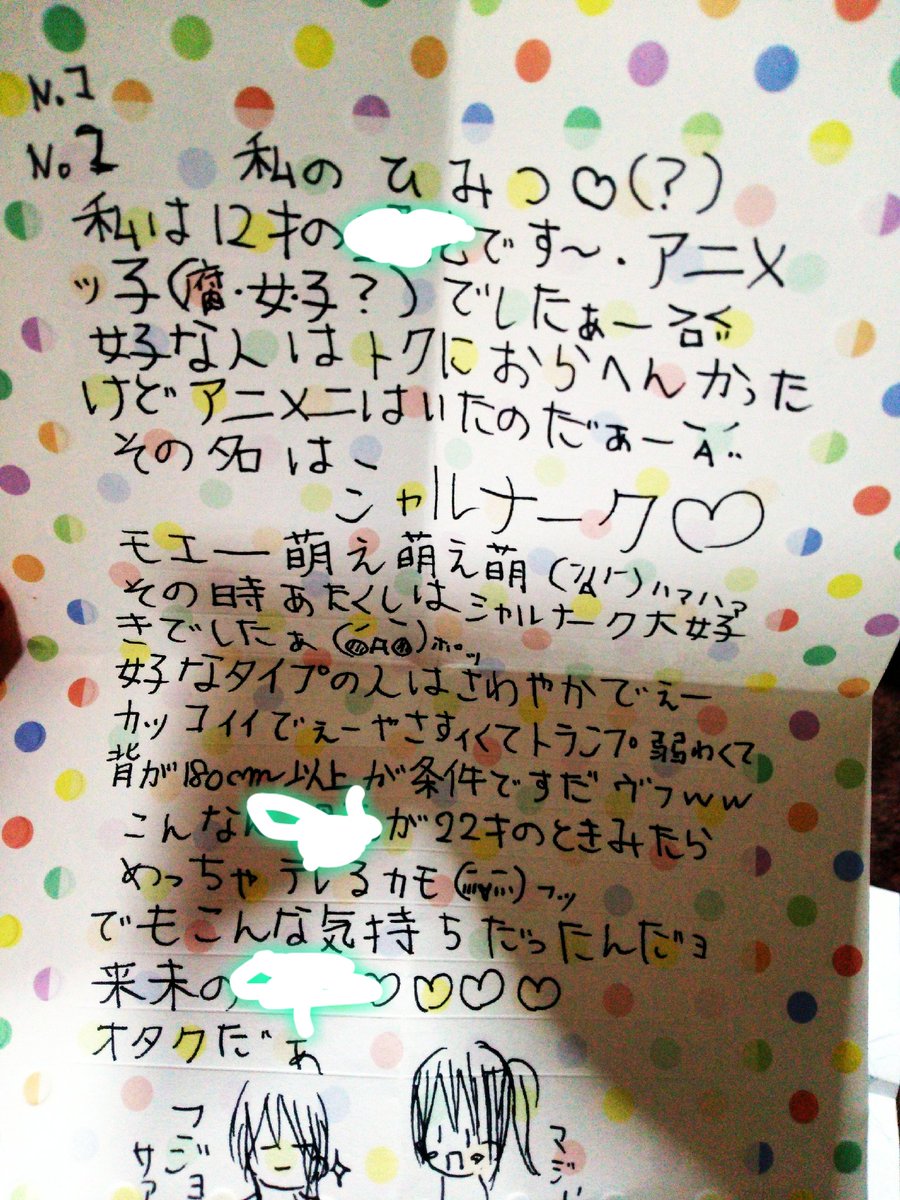 N.1
No2 私のひみつ♡(?)
私は12才の です〜.アニメ
ッ子(腐・女・子?)でしたぁー
好な人はトクにおらへんかった
けどアニメニはいたのだぁー
その名は、
シャルナーク♡
モエー萌え萌え萌 ハァハァ
その時あたくしはシャルナーク大好
きでしたぁ ポッ
好なタイプの人はさわやかでぇー
カッコイイでぇーやさすィくてトランプ弱わくて
背が180cm以上が条件ですだ ヴフww
こんな が22才のときみたら
めっちゃテレるカモ フッ
でもこんな気持ちだったんだョ
来未の ♡♡♡♡
オタクだぁ
フジョ
サァ
マジ